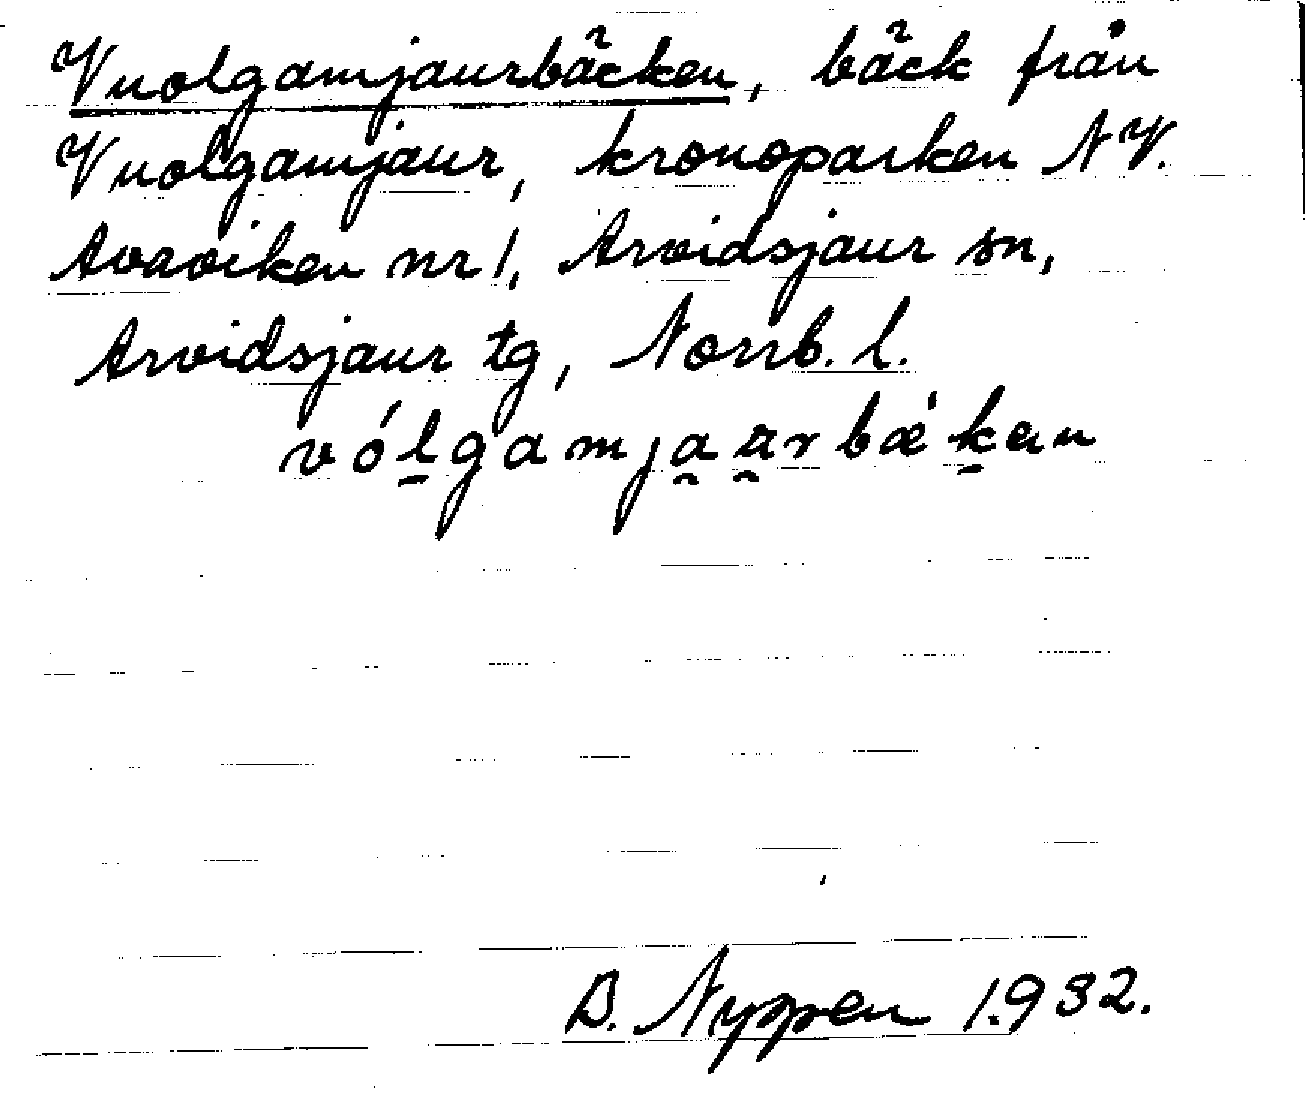 Vuolgamjaurbäcken, bäck från
Vuolgamjaur, kronoparken N V.
Avaviken nr 1, Arvidsjaur sn,
Arvidsjaur tg, Norrb. l.
vólgamjaurbǽkan
B. Nyppen 1932.